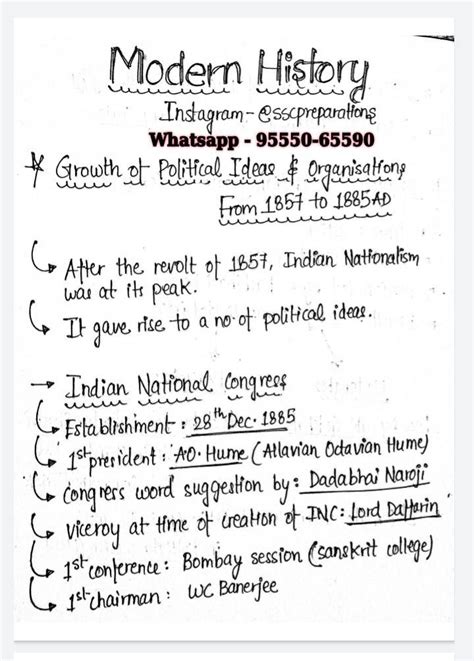 Modern History
Instagram - @sscpreparations
Whatsapp - 95550-65590
Growth of Political Ideas & Organisations
From 1857 to 1885AD
After the revolt of 1857, Indian Nationalism
was at its peak.
It gave rise to a no. of political ideas.
→ Indian National Congress
Establishment : 28th Dec. 1885
1st president : AO. Hume (Atlavian Octavian Hume)
Congress word suggestion by : Dadabhai Naroji
viceroy at time of creation of INC : Lord Daffarin
1st conference : Bombay session (sanskrit college)
1st chairman : WC Banerjee